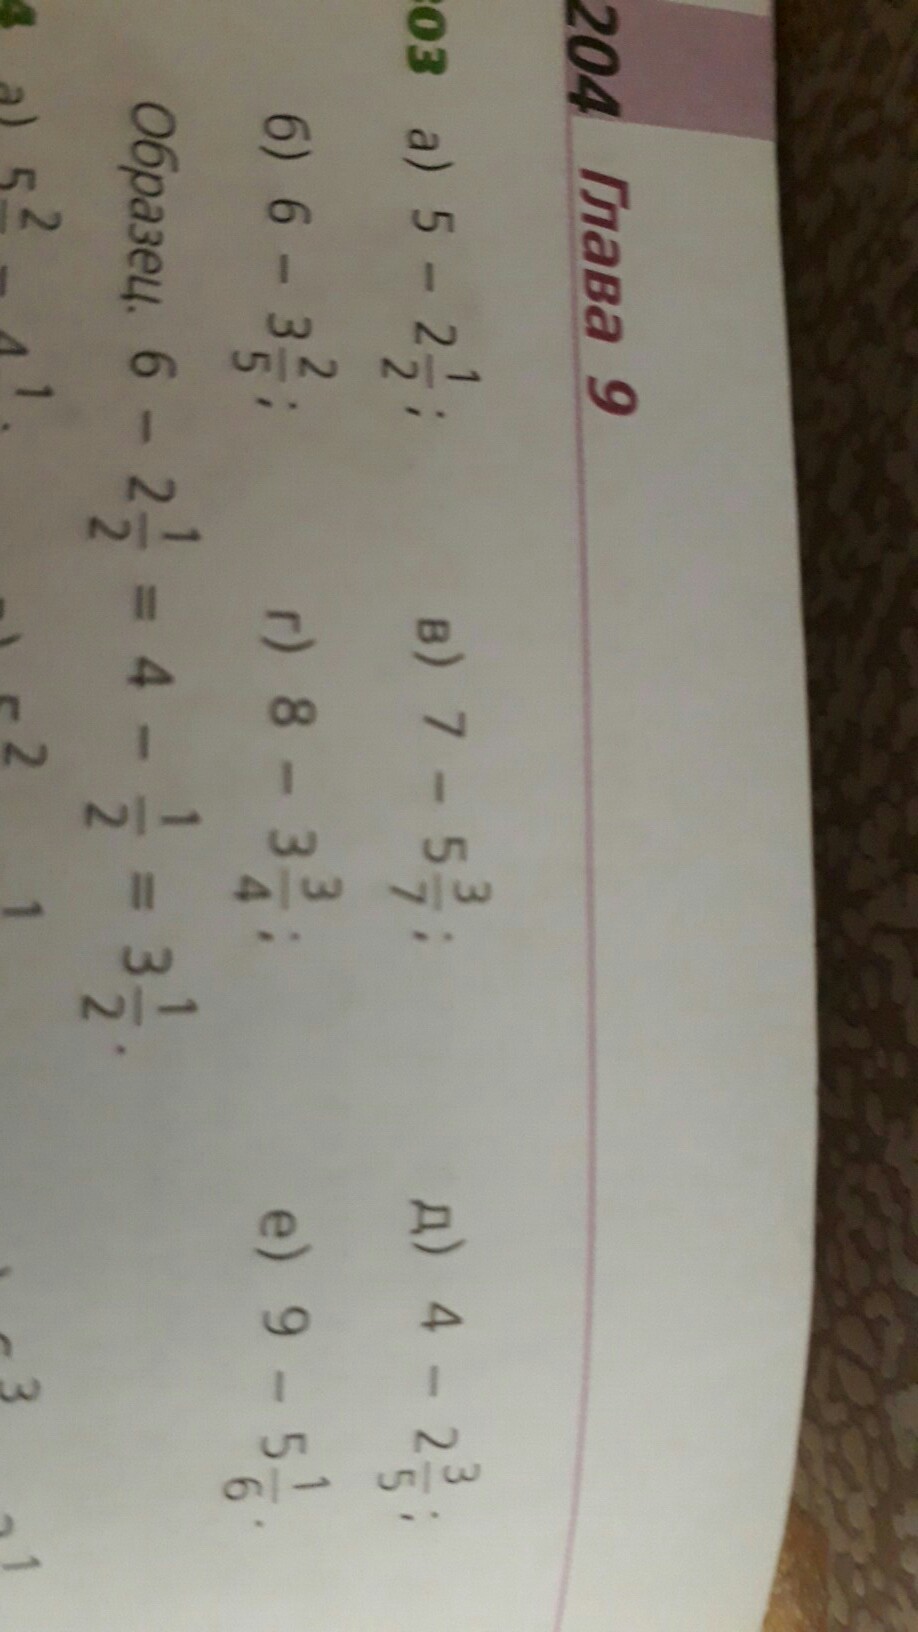 204 Глава 9
03 а) 5 − 2 1/2; в) 7 − 5 3/7; д) 4 − 2 3/5;
б) 6 − 3 2/5; г) 8 − 3 3/4; е) 9 − 5 1/6.
Образец. 6 − 2 1/2 = 4 − 1/2 = 3 1/2.
4 а) 5 2 − 4 1 5 2 1 3 1